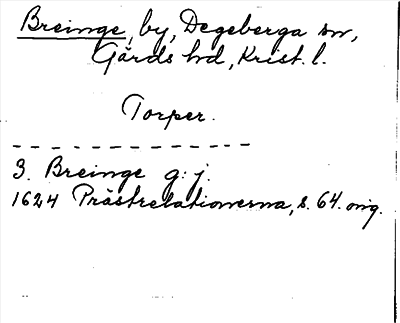 Breinge, by, Degeberga sn,
Gärds hd, Krist. l.
Torper.
3. Breinge g. j.
1624 Prästrelationerna, s. 64. orig.